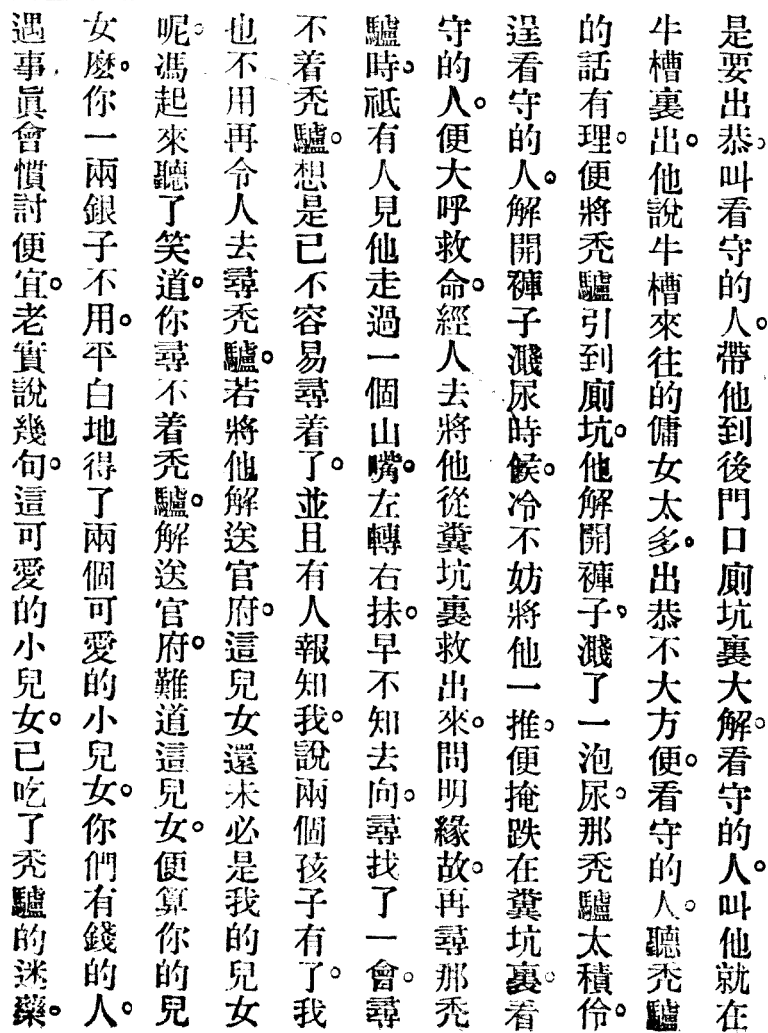 是要出恭。叫看守的人。帶他到後門口廁坑裏大解。看守的人。叫他就在
牛槽裏出。他說牛槽來往的傭女太多。出恭不大方便。看守的人。聽禿驢
的話有理。便將禿驢引到廁坑。他解開褲子。濺了一泡尿。那禿驢太積伶。
逞看守的人。解開褲子濺尿時候。冷不妨將他一推。便掩跌在糞坑裏。看
守的人。便大呼救命。經人去將他從糞坑裏救出來。問明緣故。再尋那禿
驢時。祇有人見他走過一個山嘴。左轉右抹。早不知去向。尋找了一會。尋
不着禿驢。想是已不容易尋着了。並且有人報知我。說兩個孩子有了。我
也不用再令人去尋禿驢。若將他解送官府。這兒女還未必是我的兒女
呢。馮起來聽了笑道。你尋不着禿驢。解送官府。難道這兒女。便算你的兒
女麼。你一兩銀子不用。平白地得了兩個可愛的小兒女。你們有錢的人。
遇事眞會慣討便宜。老實說幾句。這可愛的小兒女。已吃了禿驢的迷藥。